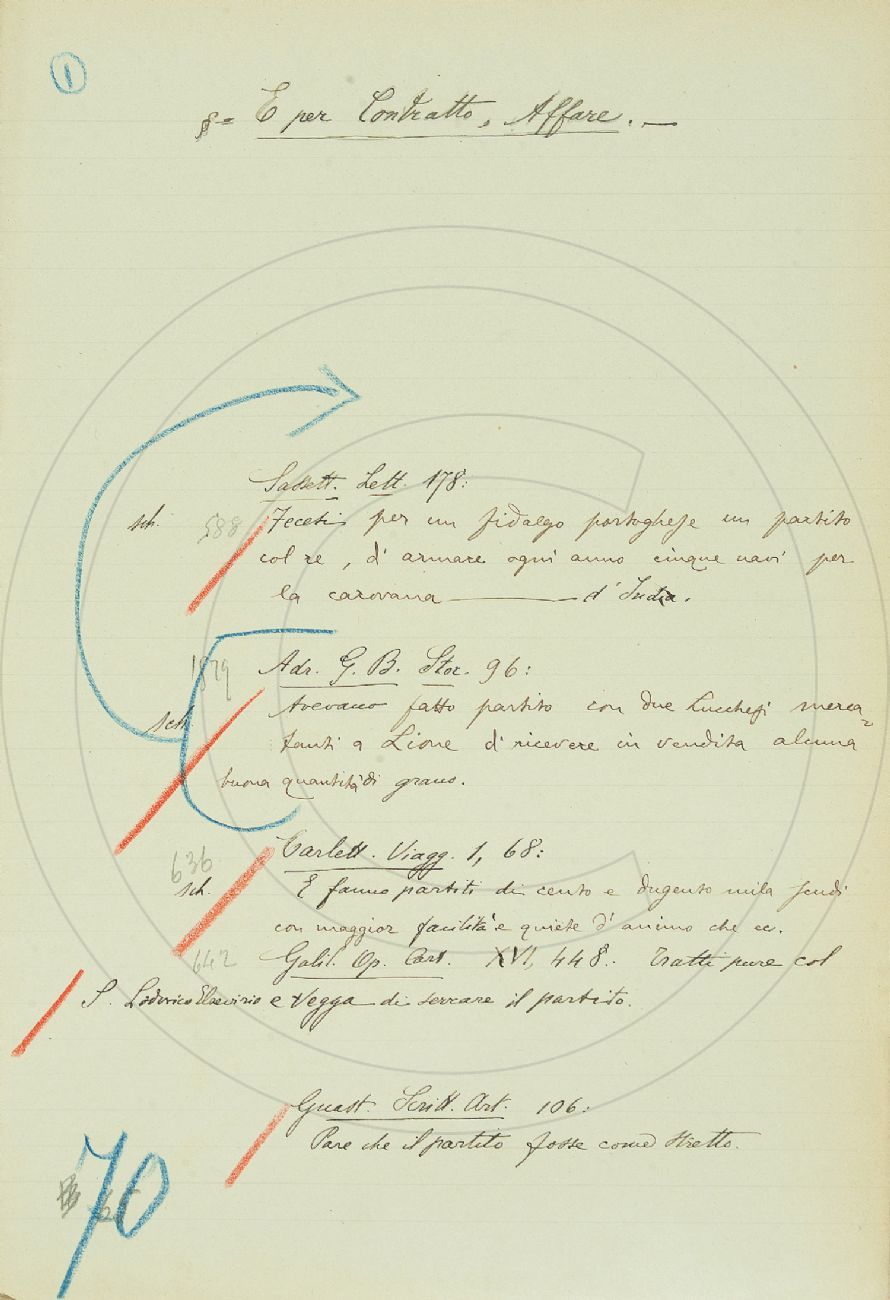 1
§= E per Contratto, Affare. —
Sassett. Lett. 178:
sch. 588 Fecesi per un fidalgo portoghese un partito
col re, d'armare ogni anno cinque navi per
la carovana ——— d'India.
1579
Adr. G. B. Stor. 96:
sch. Avevano fatto partito con due Lucchesi merca=
tanti a Lione di ricevere in vendita alcuna
buona quantità di grano.
Carlett. Viagg. 1, 68:
636
sch. E fanno partiti di cento e dugento mila scudi
con maggior facilità e quiete d'animo che ec.
642 Galil. Op. Cart. XVI, 448. Tratti pure col
S. Lodovico Elsevirio e vegga di serrare il partito.
Guast. Scritt. Art. 106:
Pare che il partito fosse come stretto.
70
65